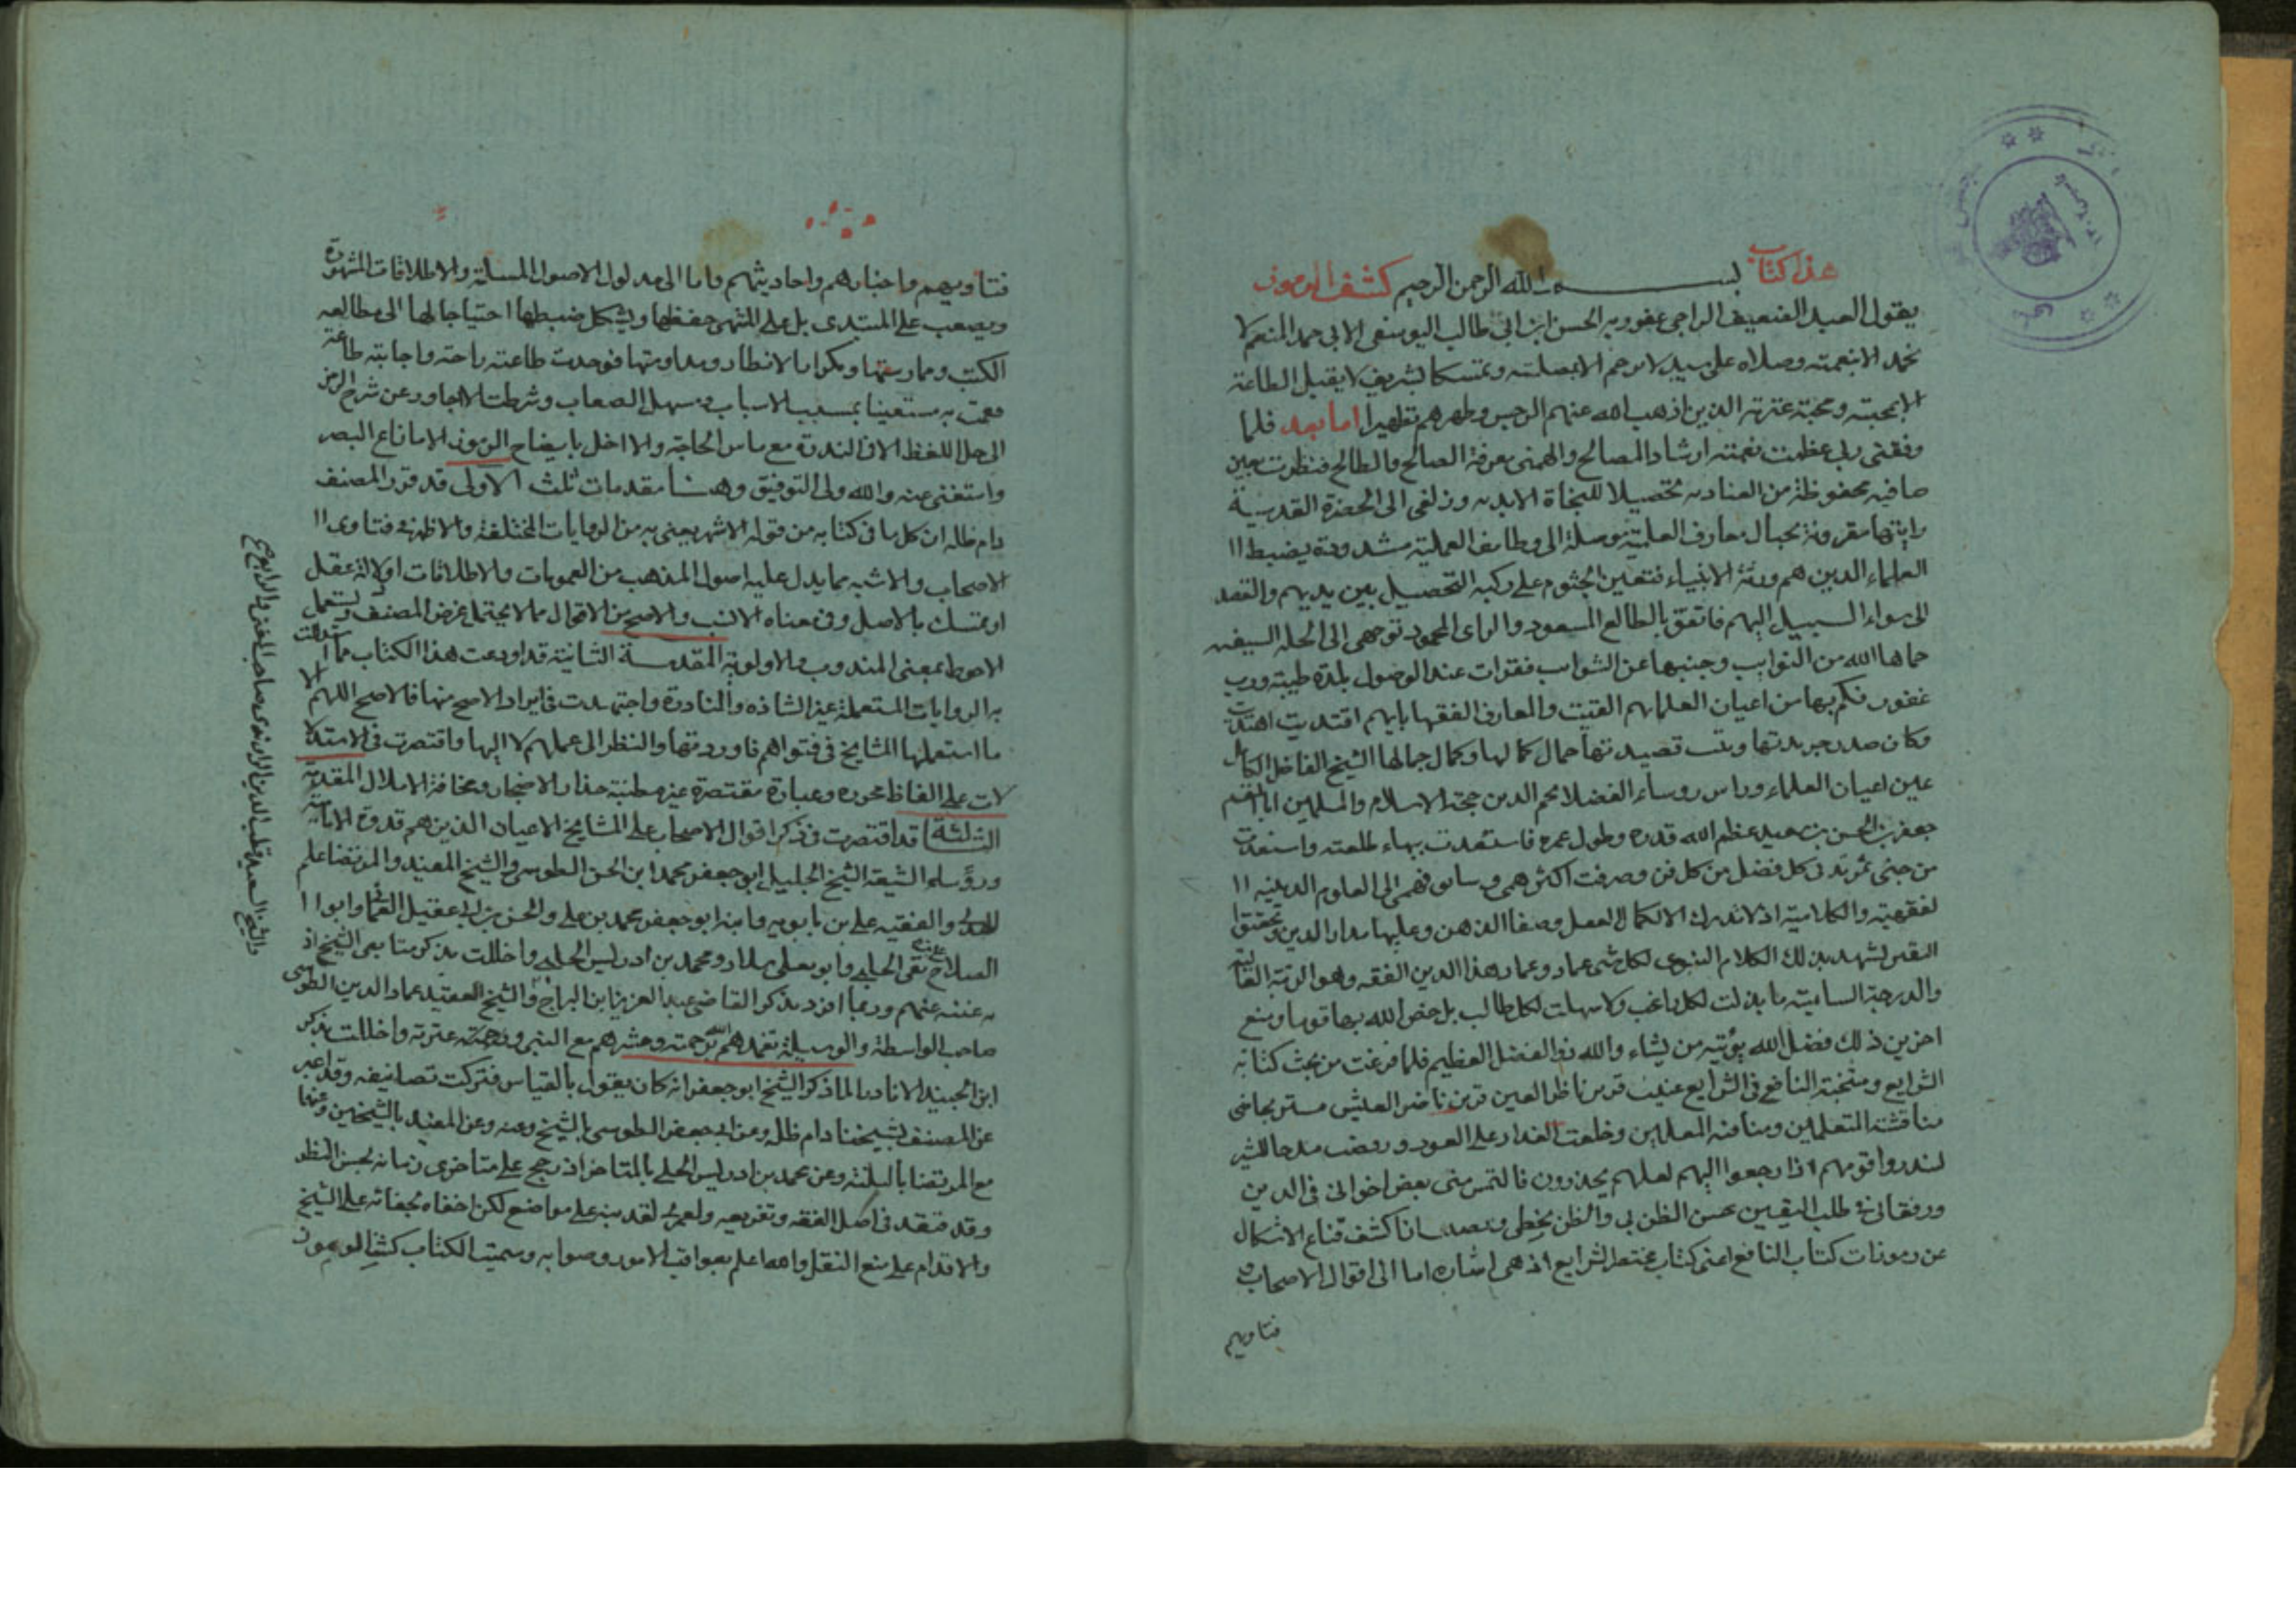 هذا كتاب بسم الله الرحمن الرحيم كشف الرموز
يقول العبد الضعيف الراجي عفو ربه الحسن ابن ابي طالب اليوسفي الابي حمد المنعم لا
نحمد الا بنعمته وصلاه على سيد لا نرحم الا بصلته وتمسكا بشريف لا يقبل الطاعة
الا بمحبته ومحبة عترته الذين اذهب الله عنهم الرجس وطهرهم تطهيرا اما بعد فلما
وفقني ربي عظمت نعمته ارشاد المصالح والهمني معرفة الصالح والطالح فنظرت بعين
صافيه محفوظة من العناد به تحصيلا للنجاة الابديه وزلفى الى الحضرة القدسية
رايتها مقرونة بحبال معارف العلمية موصلة الى وظايف العملية مشدودة بضبط ا
العلماء الذين هم ورثة الانبياء فتعين الجثوم على ركبه التحصيل بين يديهم والقصد
الى سواء السبيل اليهم فاتفق بالطالع المسعود والراى المحمود توجهى الى الحله السيفيه
حماها الله من النوايب وجنبها عن الشوايب فقرات عند الوصول بلدة طيبه ورب
غفور فكم بها من اعيان العلما بهم القيت والمعارف الفقها بايهم اقتديت اهتديت
وكان صدر جريدتها وبيت قصيدتها جمال كمالها وكمال جمالها الشيخ الفاضل الكامل
عين اعيان العلماء وراس روساء الفضلا نجم الدين حجة الاسلام والمسلمين ابا القسم
جعفر بن الحسن بن سعيد عظم الله قدره وطول عمره فاستسعدت ببهاء طلعته واستفدت
من جنى ثمرته فى كل فضل من كل فن وصرفت اكثر همى وسابق فهمى الى العلوم الدينيه ا
لفقهيه والكلامية اذ لا تدرك الا لكمال العقل وصفا الذهن وعليها مدار الدين وتحقق
اليقين لشهد بذلك الكلام النبوى لكل شى عماد وعماد هذا الدين الفقه وهو الرتبة العالية
والدرجة السامية ما بذلت لكل راغب ولا سهلت لكل طالب بل خص الله بها قوما ومنع
اخرين ذلك فضل الله يؤتيه من يشاء والله ذو الفضل العظيم فلما فرغت من بحث كتابه
الشرايع ومنتخبة النافع فى الشرايع عنيت قرير ناظر العين قرين ناضر العيش مستريحا عن
مناقشة المتعلمين ومنافثه المعلمين وخلعت العذار على العود ورفضت مدحا للشر
لنذروا قومهم اذا رجعوا اليهم لعلهم يحذرون فالتمس منى بعض اخوانى فى الدين
ورفقائى فى طلب اليقين بحسن الظن بى والظن يخطى ويصيب ان اكشف قناع الاشكال
عن رموزات كتاب النافع اعنى كتاب مختصر الشرايع اذ هى اشاره اما الى اقوال الاصحاب و
فتاويهم
فتاويهم واخبارهم واحاديثهم واما الى مدلول الاصول المسلمة والاطلاقات المشهورة
ويصعب على المبتدى بل على المنتهى حفظها ويشكل ضبطها احتياجا لها الى مطالعه
الكتب وممارستها وتكرار الانظار ومداومتها فوجدت طاعته راحة واجابته طاعة
فقمت به مستعينا بمسبب الاسباب ومسهل الصعاب وشرطت لا اجاوز عن شرح الرمز
الى حل اللفظ الا فى الندرة مع ماس الحاجة ولا اخل بايضاح الرموز الا ما زاغ البصر
واستغنى عنه والله ولى التوفيق وههنا مقدمات ثلث الاولى قد قرر المصنف
دام ظله ان كل ما فى كتابه من قوله الاشهر يعنى به من الروايات المختلفة والاظهر فى فتاوى ا
الاصحاب والاشبه مما يدل عليه اصول المذهب من العمومات والاطلاقات او دلالة عقل
او تمسك بالاصل وفى معناه الانسب والاصح من الاقوال ما لا يحتمل عرض المصنف ويستعمل
الاحوط بمعنى المندوب والاولوية المقدمة الثانية قد اودعت هذا الكتاب مما استدلت
به الروايات المستعملة غير الشاذه والنادرة واجتهدت فى ايراد الاصح منها فالاصح اللهم الا
ما استعملها المشايخ فى فتواهم فاوردتها والنظر الى عملهم لا اليها واقتصرت فى الاستدلا
لات على الفاظ محرره وعبارة مقتصرة غير مطنبة حذار الاضجار ومخافة الاملال المقدمة
الثلثة قد اقتصرت فى ذكر اقوال الاصحاب على المشايخ الاعيان الذين هم قدوة الامامية
ورؤساء الشيعة الشيخ الجليل ابو جعفر محمد ابن الحسن الطوسى والشيخ المفيد والمرتضا علم
الهدى والفقيه على بن بابويه وابنه ابو جعفر محمد بن على والحسن بن ابى عقيل العمانى وابو ا
الصلاح تقى الحلبى وابو يعلى سلار ومحمد بن ادريس الحلى واخللت بذكر متابعى الشيخ اذ
به غنية عنهم وربما افرد بذكر القاضى عبد العزيز ابن البراج والشيخ الفقيه عماد الدين الطوسى
صاحب الواسطة والوسيلة تغمدهم الله برحمته وحشرهم مع النبى وعترته واخللت بذكر
ابن الجنيد الا نادرا لما ذكر الشيخ ابو جعفر انه كان يقول بالقياس فتركت تصانيفه وقد اعبر
عن المصنف بشيخنا دام ظله وعن ابى جعفر الطوسى بالشيخ وعنه وعن المفيد بالشيخين وعنهما
مع المرتضا بالثلثة وعن محمد بن ادريس الحلى بالمتاخر اذ رجح على متاخرى زمانه بحسن النظر
وقد صنف فى اصل الفقه وتفريعه ولعمرى لقد نبه على مواضع لكن اخفاه بجفائه على الشيخ
والاقدام على منع النقل والله اعلم بعواقب الامور وصوابه وسميت الكتاب كشف الرموز